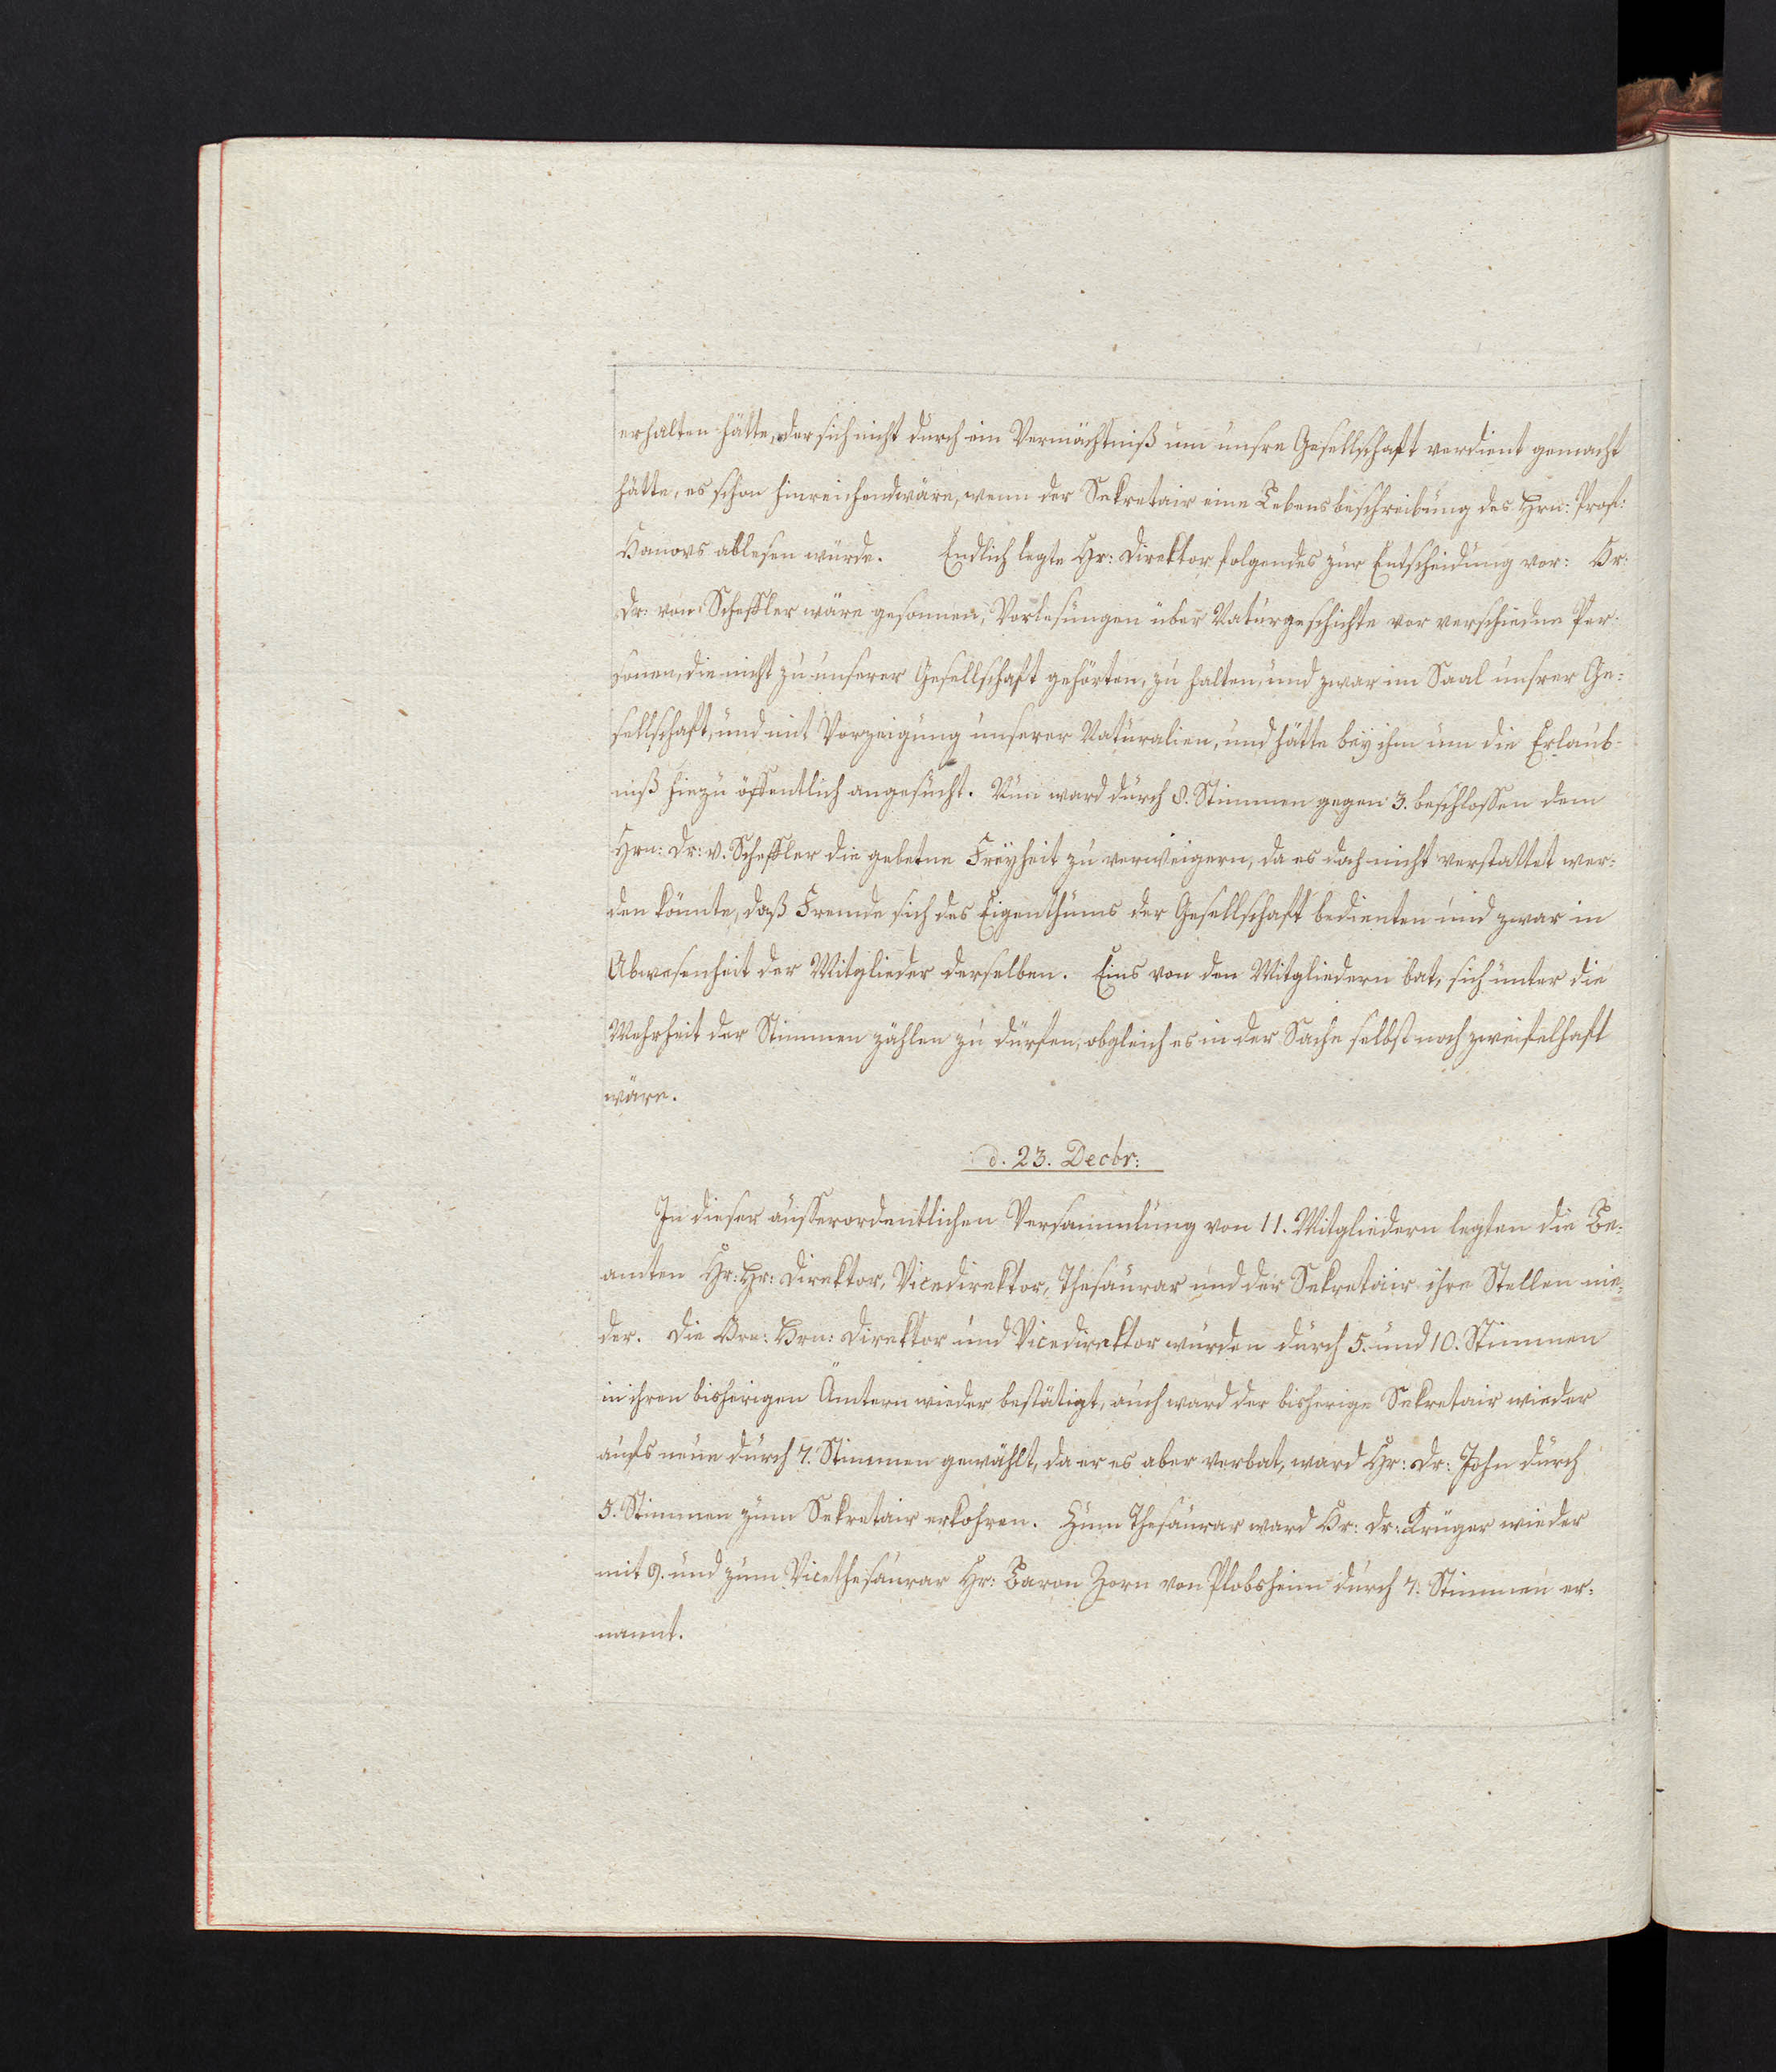 erhalten hätte, der sich nicht durch ein Vermächtniß um unsre Gesellschaft verdient gemacht
hätte, es schon hinreichend wäre, wenn der Sekretair eine Lebensbeschreibung des Hrn: Prof:
Hanovs ablesen würde. Endlich legte Hr: Direktor folgendes zur Entscheidung vor: Hr:
Dr: von Scheffler wäre gesonnen, Vorlesungen über Naturgeschichte vor verschiedne Per-
sonen, die nicht zu unserer Gesellschaft gehörten, zu halten, und zwar im Saal unsrer Ge-
sellschaft, und mit Vorzeigung unserer Naturalien, und hätte bey ihm um die Erlaub-
niß hiezu öffentlich angesucht. Nun ward durch 8. Stimmen gegen 3. beschlossen dem
Hrn: Dr: v. Scheffler die gebetne Freyheit zu verweigern, da es doch nicht verstattet wer-
den könnte, daß Fremde sich des Eigenthums der Gesellschaft bedienten und zwar in
Abwesenheit der Mitglieder derselben. Eins von den Mitgliedern bat, sich unter die
Mehrheit der Stimmen zählen zu dürfen, obgleich es in der Sache selbst noch zweifelhaft
wäre.
d. 23. Decbr:
In dieser ausserordentlichen Versammlung von 11. Mitgliedern legten die Be-
amten Hr: Hr: Direktor, Vicedirektor, Thesaurar und der Sekretair ihre Stellen nie-
der. Die Hrn: Hrn: Direktor und Vicedirektor wurden durch 5. und 10. Stimmen
in ihren bisherigen Ämtern wieder bestätigt, auch ward der bisherige Sekretair wieder
aufs neue durch 7. Stimmen gewählt, da er es aber verbat, ward Hr: Dr: John durch
5. Stimmen zum Sekretair erkohren. Zum Thesaurar ward Hr: Dr: Krüger wieder
mit 9. und zum Vicethesaurar Hr: Baron Zorn von Plobsheim durch 7. Stimmen er-
nannt.